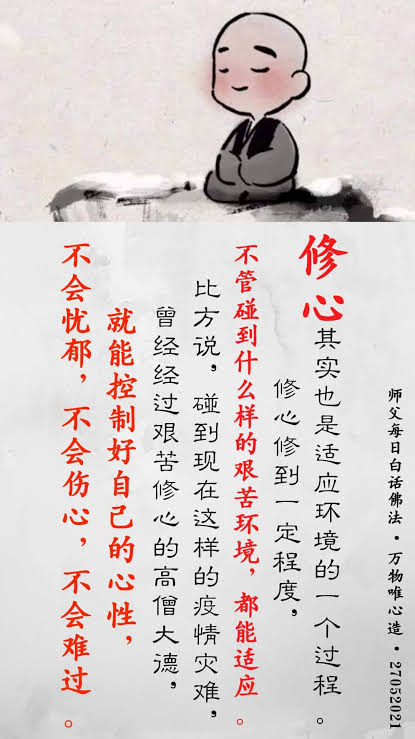 师父每日白话佛法·万物唯心造·27052021
修心其实也是适应环境的一个过程。
修心修到一定程度，
不管碰到什么样的艰苦环境，都能适应。
比方说，碰到现在这样的疫情灾难，
曾经经过艰苦修心的高僧大德，
就能控制好自己的心性，
不会忧郁，不会伤心，不会难过。